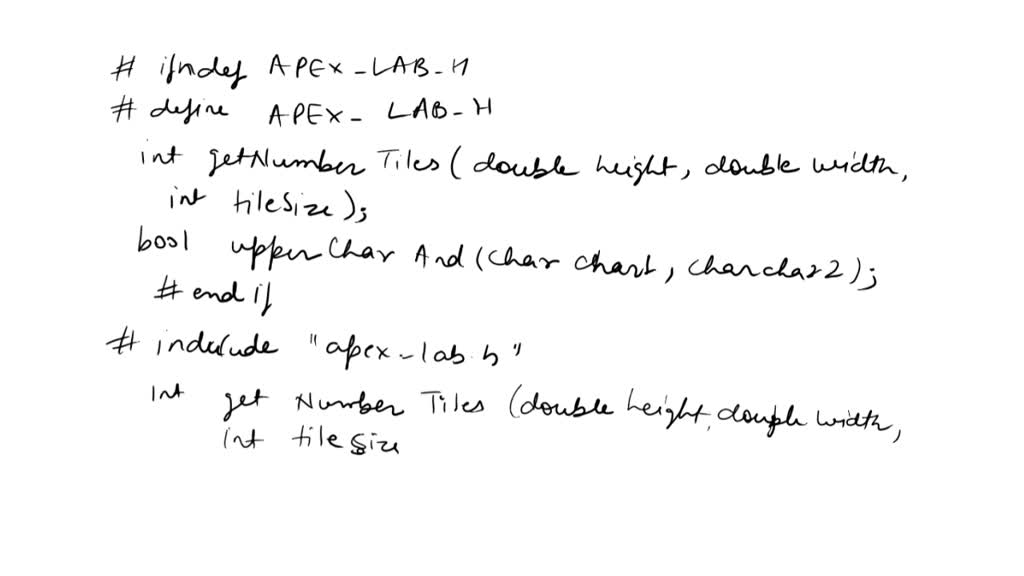 # ifndef APEX-LAB-H
# define APEX- LAB-H
int getNumber Tiles ( double height, double width,
int tileSize );
bool upperChar And (char char1, char char2);
# end if
# include "apex-lab.h"
Int get Number Tiles (double height, double width,
int tile size